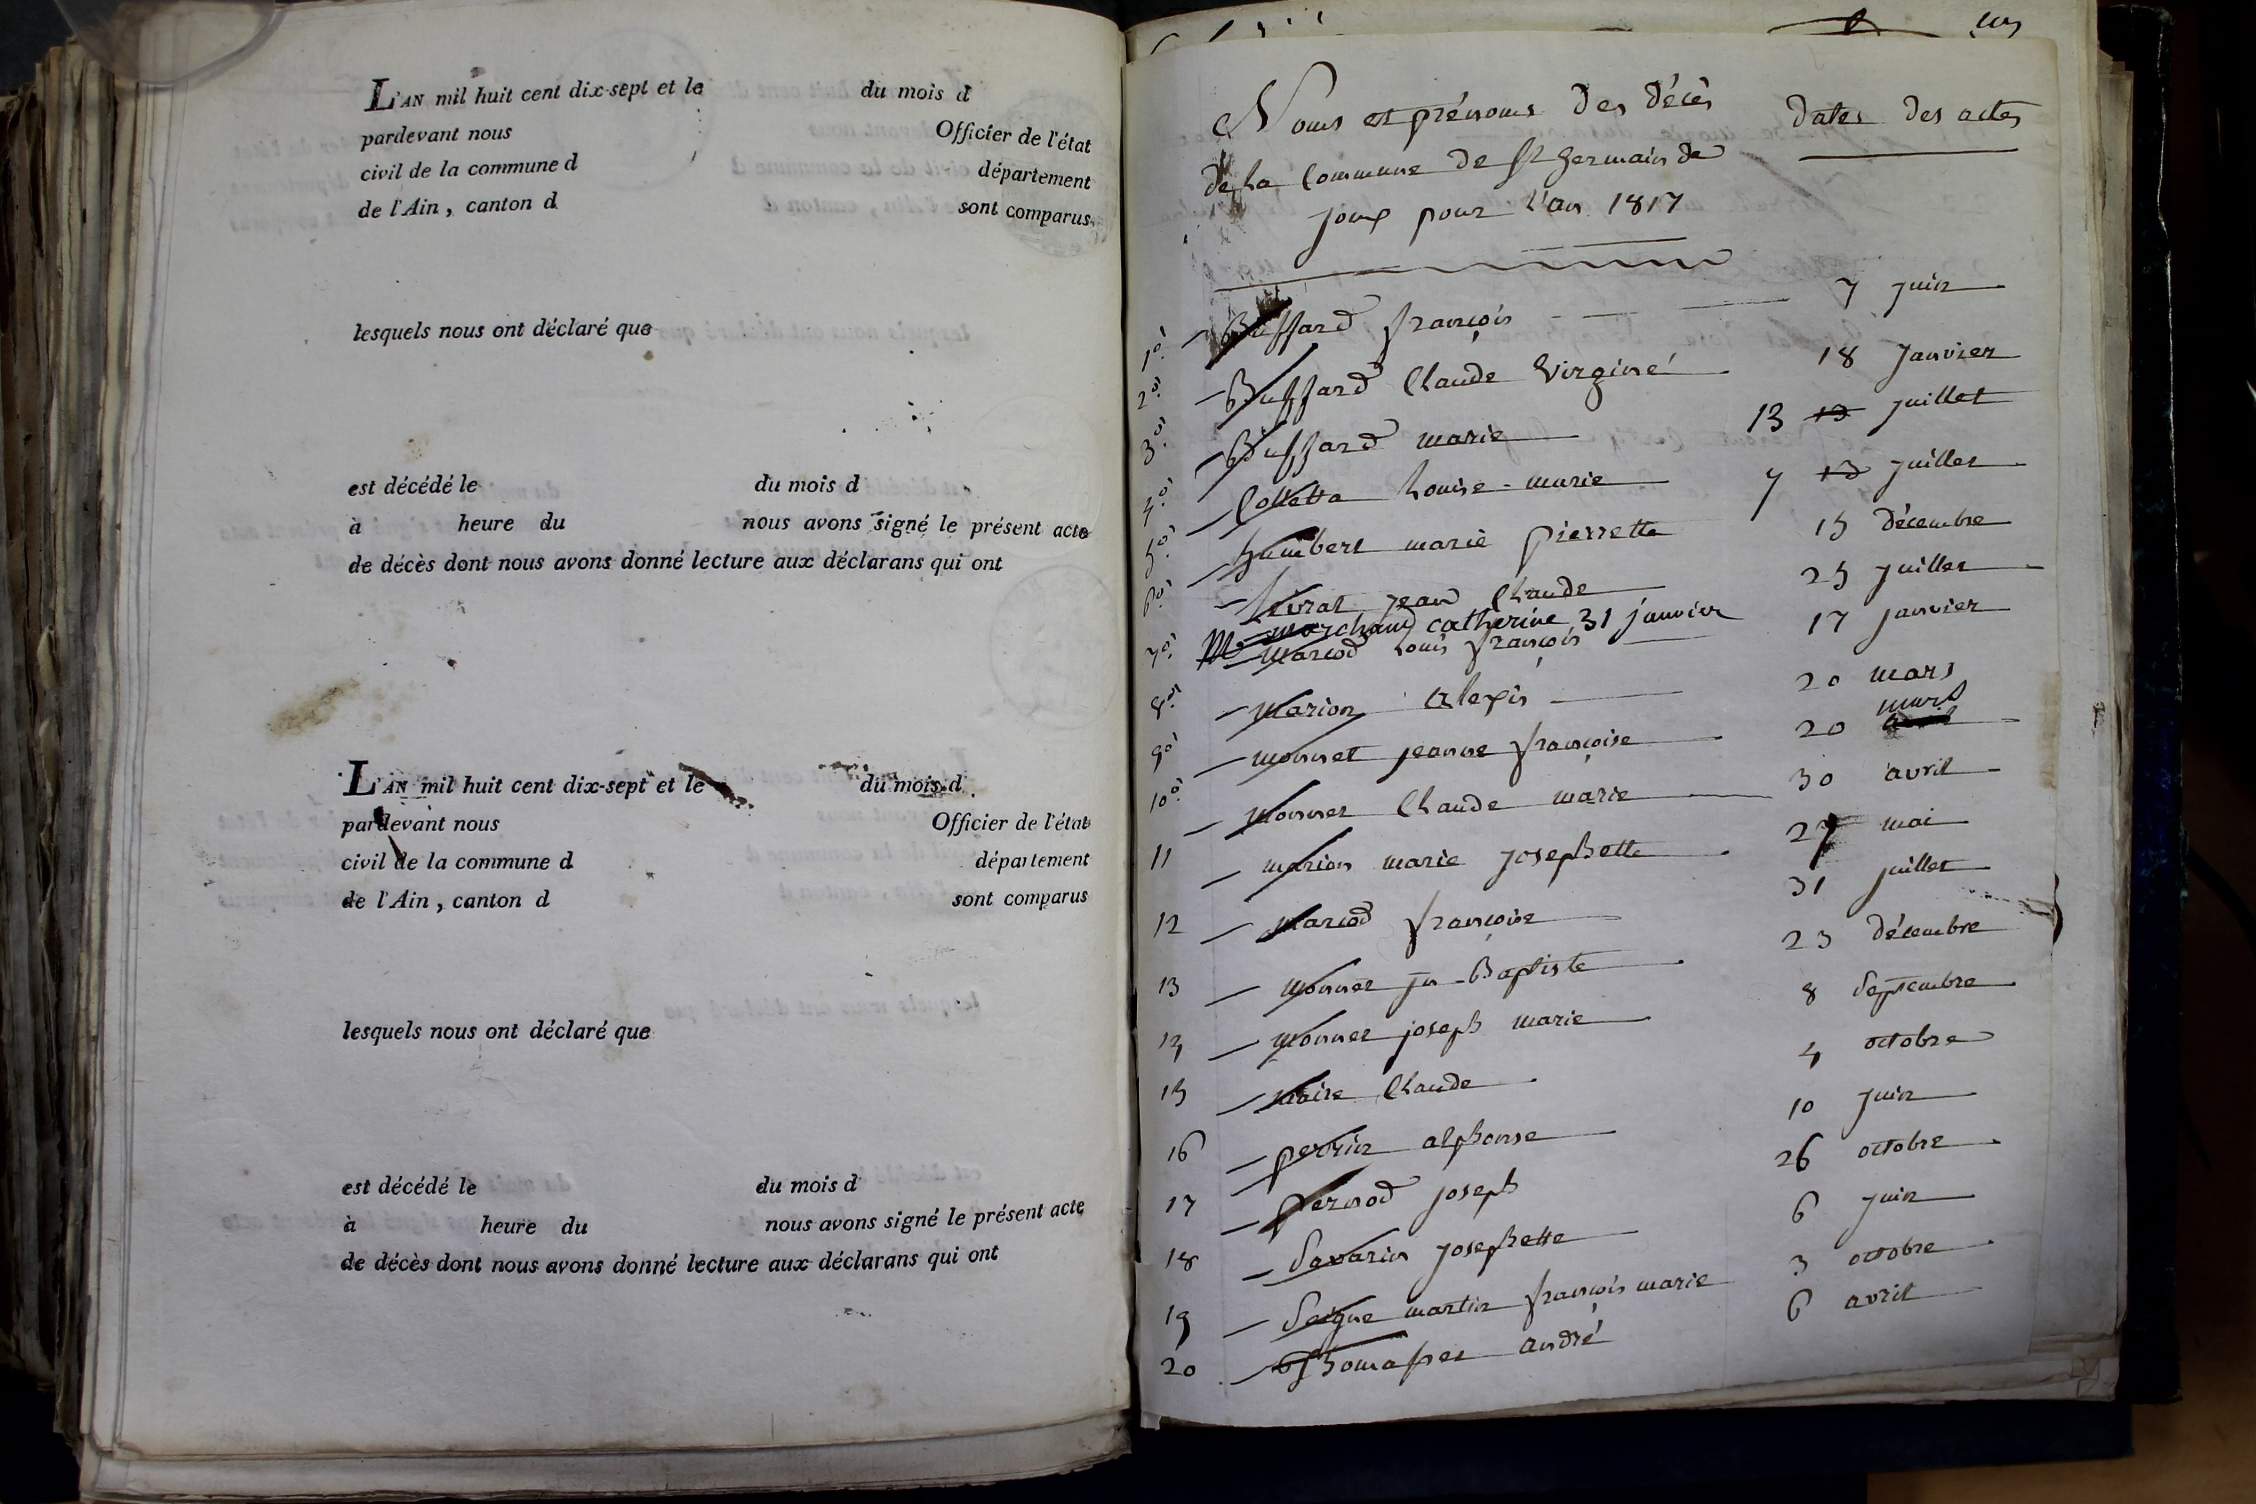 L'AN mil huit cent dix-sept et le du mois d
pardevant nous Officier de l'état
civil de la commune d département
de l'Ain, canton d sont comparus
lesquels nous ont déclaré que
est décédé le du mois d
à heure du nous avons signé le présent acte
de décès dont nous avons donné lecture aux déclarans qui ont
L'AN mil huit cent dix-sept et le du mois d
pardevant nous Officier de l'état
civil de la commune d département
de l'Ain, canton d sont comparus
lesquels nous ont déclaré que
est décédé le du mois d
à heure du nous avons signé le présent acte
de décès dont nous avons donné lecture aux déclarans qui ont
Noms et prénoms des décès dates des actes
de la Commune de St Germain de
joux pour l'an 1817
1o. Buffard françois 7 juin
2o. Buffard Claude Virginé 18 Janvier
3o. Buffard marie 13 13 juillet
4o. Colletta Louise-marie 7 13 juillet
5o. humbert marie pierrette 15 décembre
6o. Livrat jean Claude 25 juillet
marchand catherine 31 janvier
7o. marcod Louis françois 17 janvier
8o. marion alexis 20 mars
mars
9o. monnet jeanne françoise 20
10o. monnet Claude marie 30 avril
11 marion marie josephette 27 mai
12 marcod françoise 31 juillet
13 monnet jn-Baptiste 23 décembre
14 monnet joseph marie 8 Septembre
15 maire Claude 4 octobre
16 perrin alphonse 10 juin
17 pernod joseph 26 octobre
18 Savarin josephette 6 juin
19 Seigne martin françois marie 3 octobre
20 Thomasset andré 6 avril